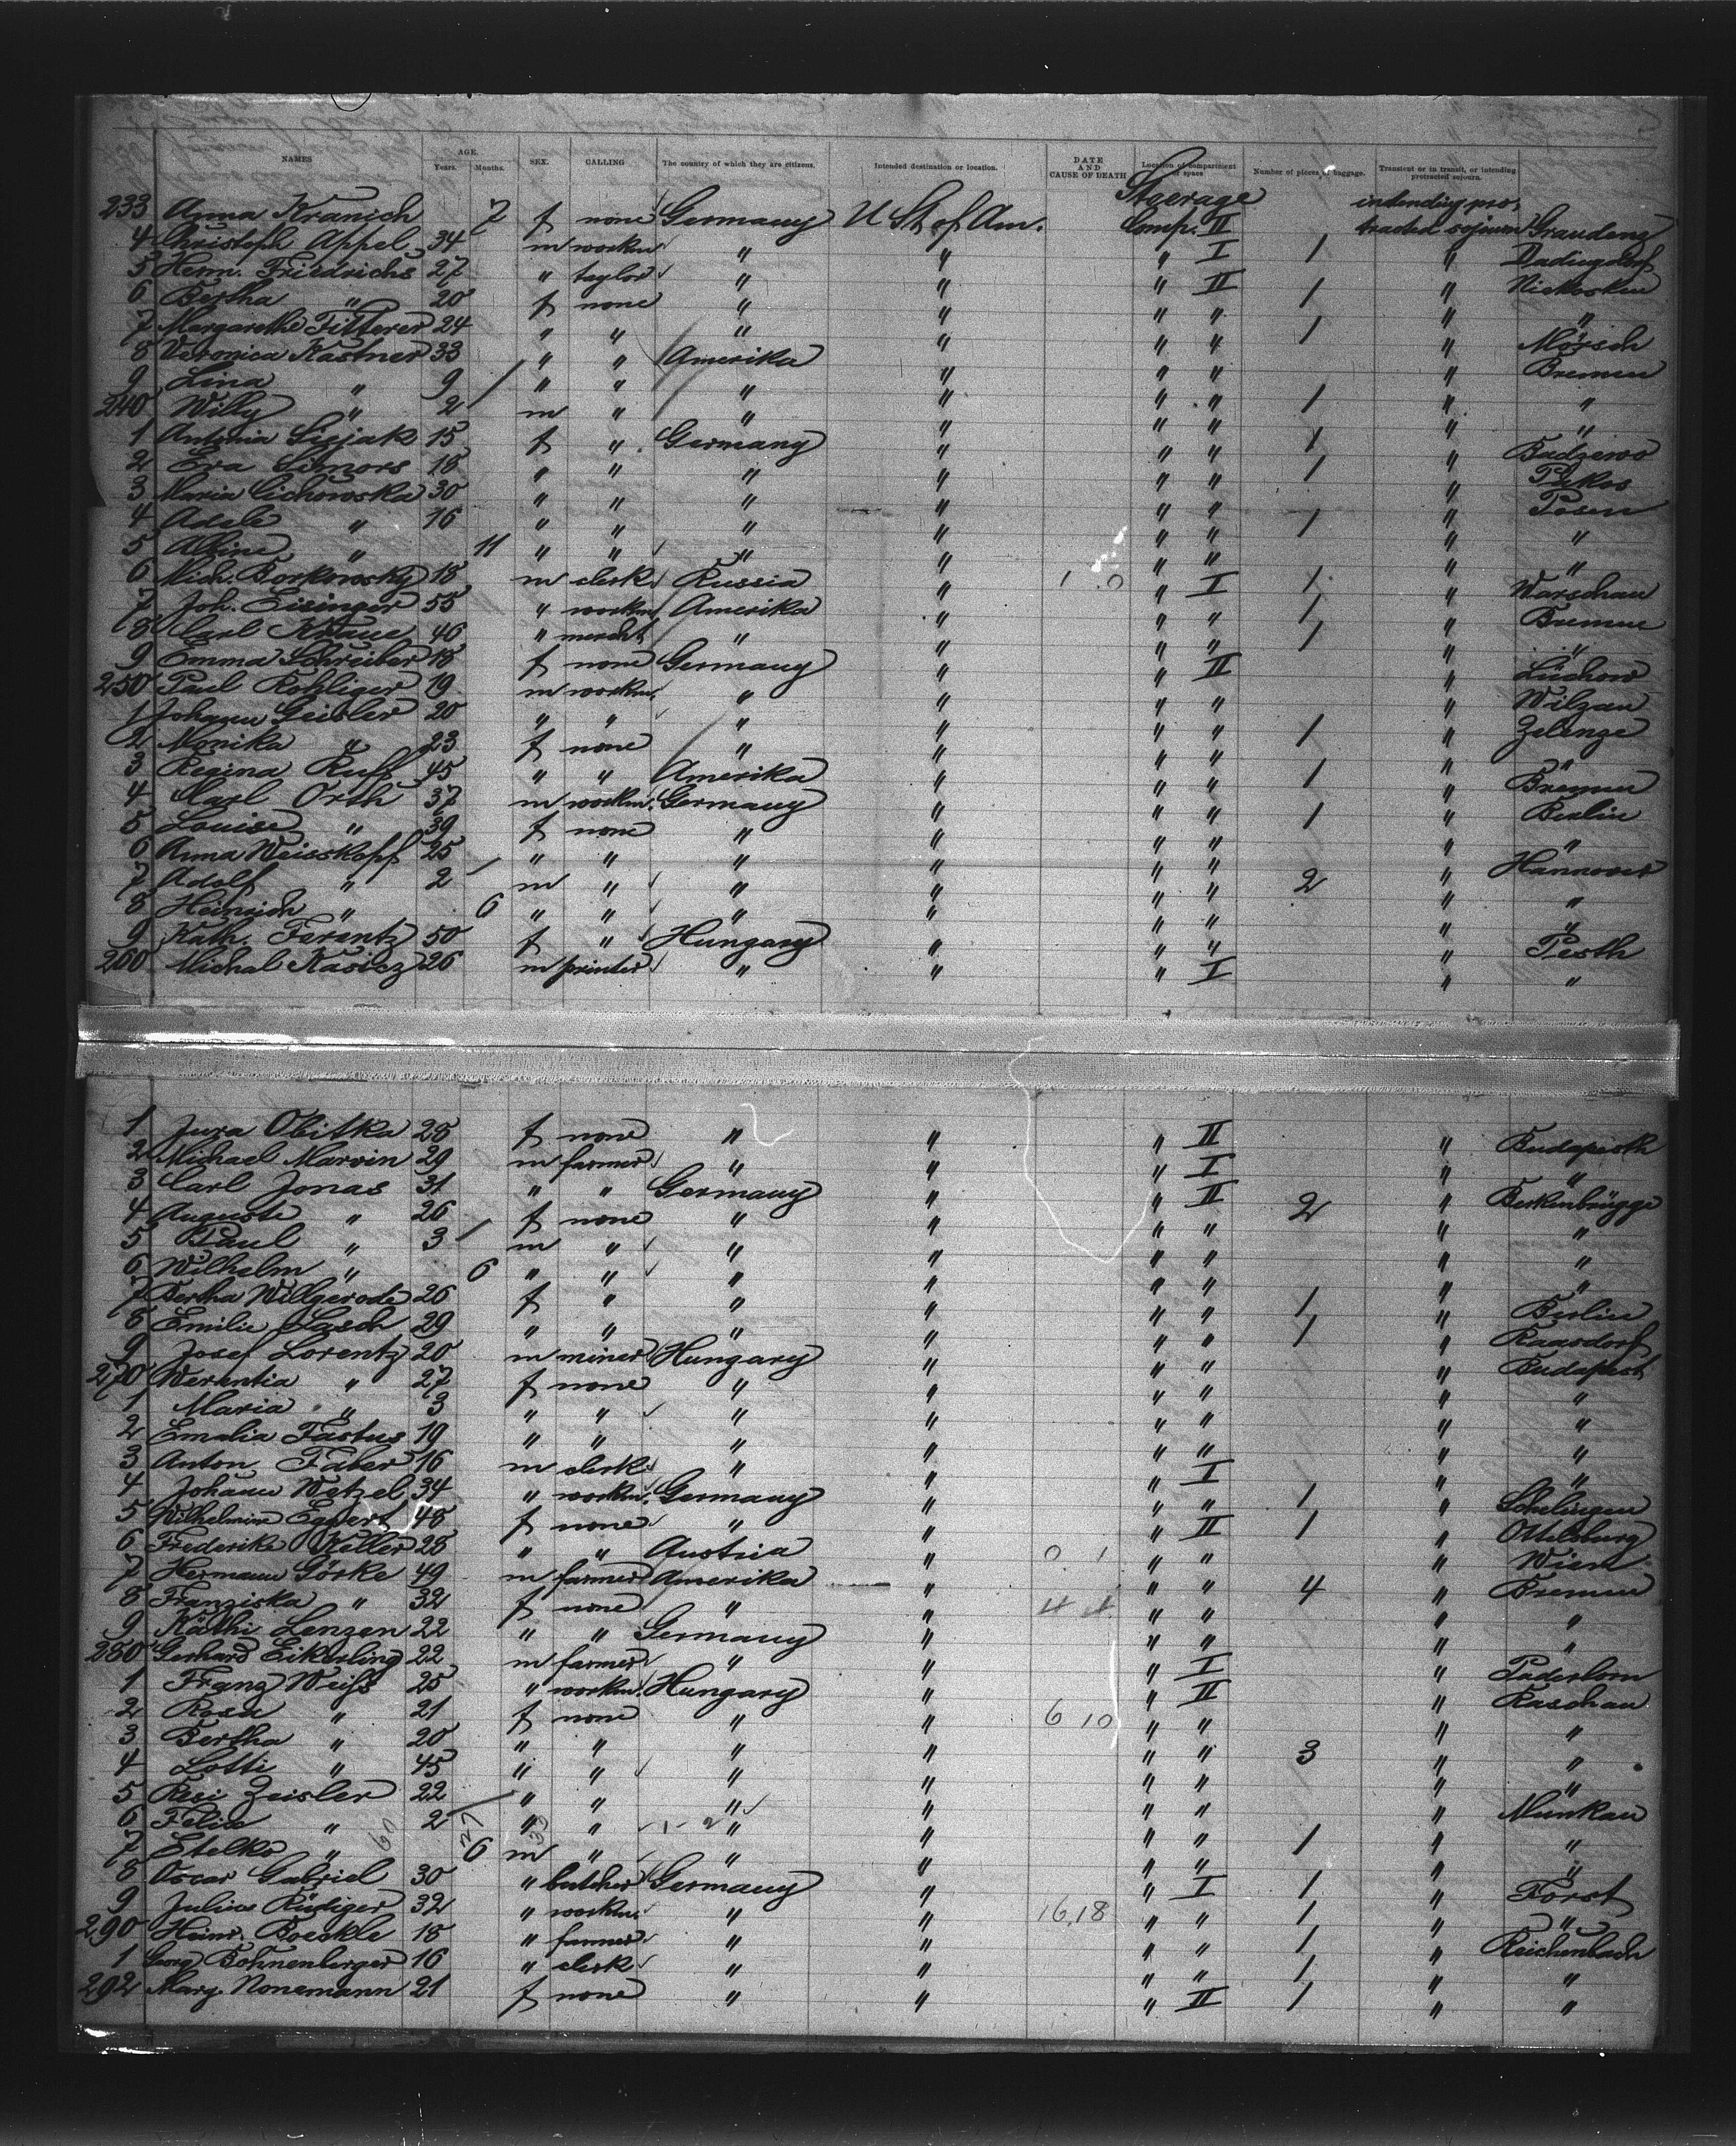 NAMES AGE. Years. Months. SEX. CALLING The country of which they are citizens. Intended destination or location. DATE AND CAUSE OF DEATH Location of compartment or space Number of pieces of baggage. Transient or in transit, or intending protracted sojourn.
Steerage intending pro-
233 Anna Kranich 7 f none Germany U St of Am. Comp. II tracted sojourn Graudenz
4 Christoph Appel 34 m workm " " " I 1 "
5 Herm. Friedrichs 27 " taylor " " " II "
6 Bertha " 20 f none " " " " 1 " "
7 Margarethe Fitterer 24 " " " " " " 1 " Mörsch
8 Veronica Kastner 33 " " Amerika " " " " Bremen
9 Lina " 9 " " " " " " 1 " "
240 Willy " 2 m " " " " " " "
1 Antonia Sisjak 15 f " Germany " " " 1 " Badzewo
2 Eva Simors 18 " " " " " " 1 "
3 Maria Cichowska 30 " " " " " " " Posen
4 Adele " 16 " " " " " " 1 " "
5 Albine " 11 " " " " " " " "
6 Mich. Borkowsky 18 m clerk Russia " 1 0 " I 1 " Warschau
7 Joh. Eisinger 55 " workm Amerika " " " 1 " Bremen
8 Carl Krause 46 " mercht " " " " 1 " "
9 Emma Schreiber 18 f none Germany " " II " Lüchow
250 Paul Rohliger 19 m workm. " " " " " Wilzen
1 Johann Geisler 20 " " " " " " 1 " Zelenze
2 Monika " 23 f none " " " " " "
3 Regina Ruff 45 " " Amerika " " " 1 " Bremen
4 Karl Orth 37 m workm. Germany " " " 1 " Berlin
5 Louise " 39 f none " " " " " "
6 Anna Weisskopf 25 " " " " " " " Hannover
7 Adolf " 2 m " " " " " 2 " "
8 Heinrich " 6 " " " " " " " "
9 Kath. Ferentz 50 f " Hungary " " " " Pesth
260 Michal Kasicz 26 m printer " " " I " "
1 Jura Obitka 28 f none " " " II " Budapesth
2 Michael Marvin 29 m farmer " " " I " "
3 Carl Jonas 31 " " Germany " " II 2 " Berkenbrügge
4 Auguste " 26 f none " " " " " "
5 Paul " 3 m " " " " " " "
6 Wilhelm " 6 " " " " " " " "
7 Bertha Wilgerode 26 f " " " " " 1 " Berlin
8 Emilie Lasch 29 " " " " " " 1 " Raasdorf
9 Josef Lorentz 20 m miner Hungary " " " " Budapest
270 Werentia " 27 f none " " " " " "
1 Maria " 3 " " " " " " " "
2 Emalia Fastus 19 " " " " " " " "
3 Anton Faber 16 m clerk " " " I " "
4 Johann Wetzel 34 " workm. Germany " " " 1 " Schelingen
5 Wilhelmine Eggert 48 f none " " " II 1 " Ottelsburg
6 Frederike Keller 28 " " Austria " 0 1 " " " Wien
7 Hermann Görke 49 m farmer Amerika " " " 4 " Bremen
8 Franziska " 32 f none " " 4 4 " " " "
9 Käthi Lenzen 22 " " Germany " " " " "
280 Gerhard Eikerling 22 m farmer " " " I " Paderborn
1 Franz Weiss 25 " workm. Hungary " " II " Kaschau
2 Rosa " 21 f none " " 6 10 " " " "
3 Bertha " 20 " " " " " " 3 " "
4 Lotti " 45 " " " " " " " "
5 Resi Zeisler 22 " " " " " " " Munkau
6 Felice " 2 " " 1-2 " " " " 1 " "
7 Etelko " 6 m " " " " " " "
8 Oscar Gabriel 30 " butcher Germany " " I 1 " Forst
9 Julius Rüdiger 32 " workm. " " 16,18 " " 1 " "
290 Heinr. Boeckle 18 " farmer " " " " 1 " Reichenbach
1 Georg Bohnenberger 16 " clerk " " " " 1 " "
292 Marg. Nonemann 21 f none " " " II 1 " "